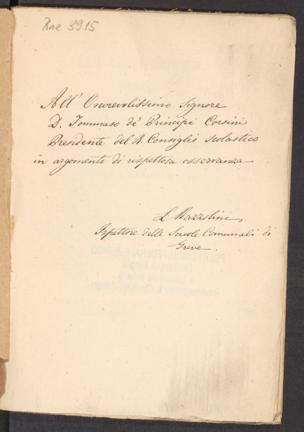 Rac 3915
All' Onorevolissimo Signore
D. Tommaso de' Principi Corsini
Presidente del R. Consiglio scolastico
in argomento di rispettosa osservanza
L.
Ispettore delle Scuole Comunali di
Greve.